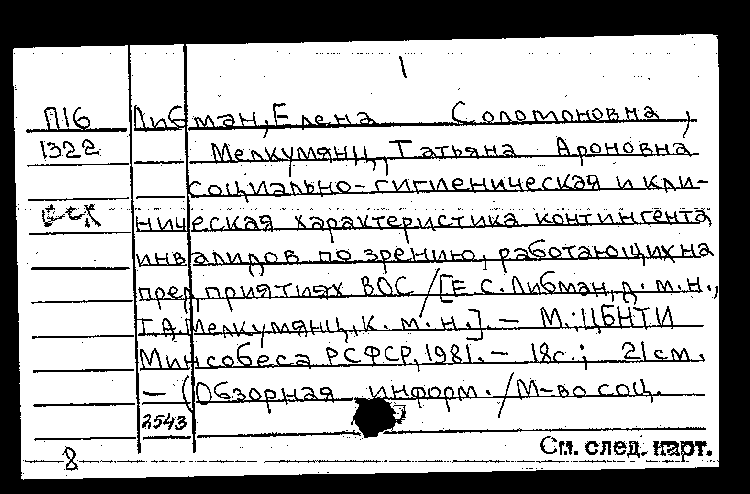 1
П16 Либман, Елена Соломоновна,
1322 Мелкумянц, Татьяна Ароновна
Социально-гигиеническая и кли-
ническая характеристика контингента
инвалидов по зрению, работающих на
предприятиях ВОС / [Е.С. Либман, д.м.н.,
Т.А. Мелкумянц, к.м.н.]. – М.: ЦБНТИ
Минсобеса РСФСР, 1981. – 18с.; 21 см.
– (Обзорная информ. / М-во соц.
2543
См. след. карт.
8